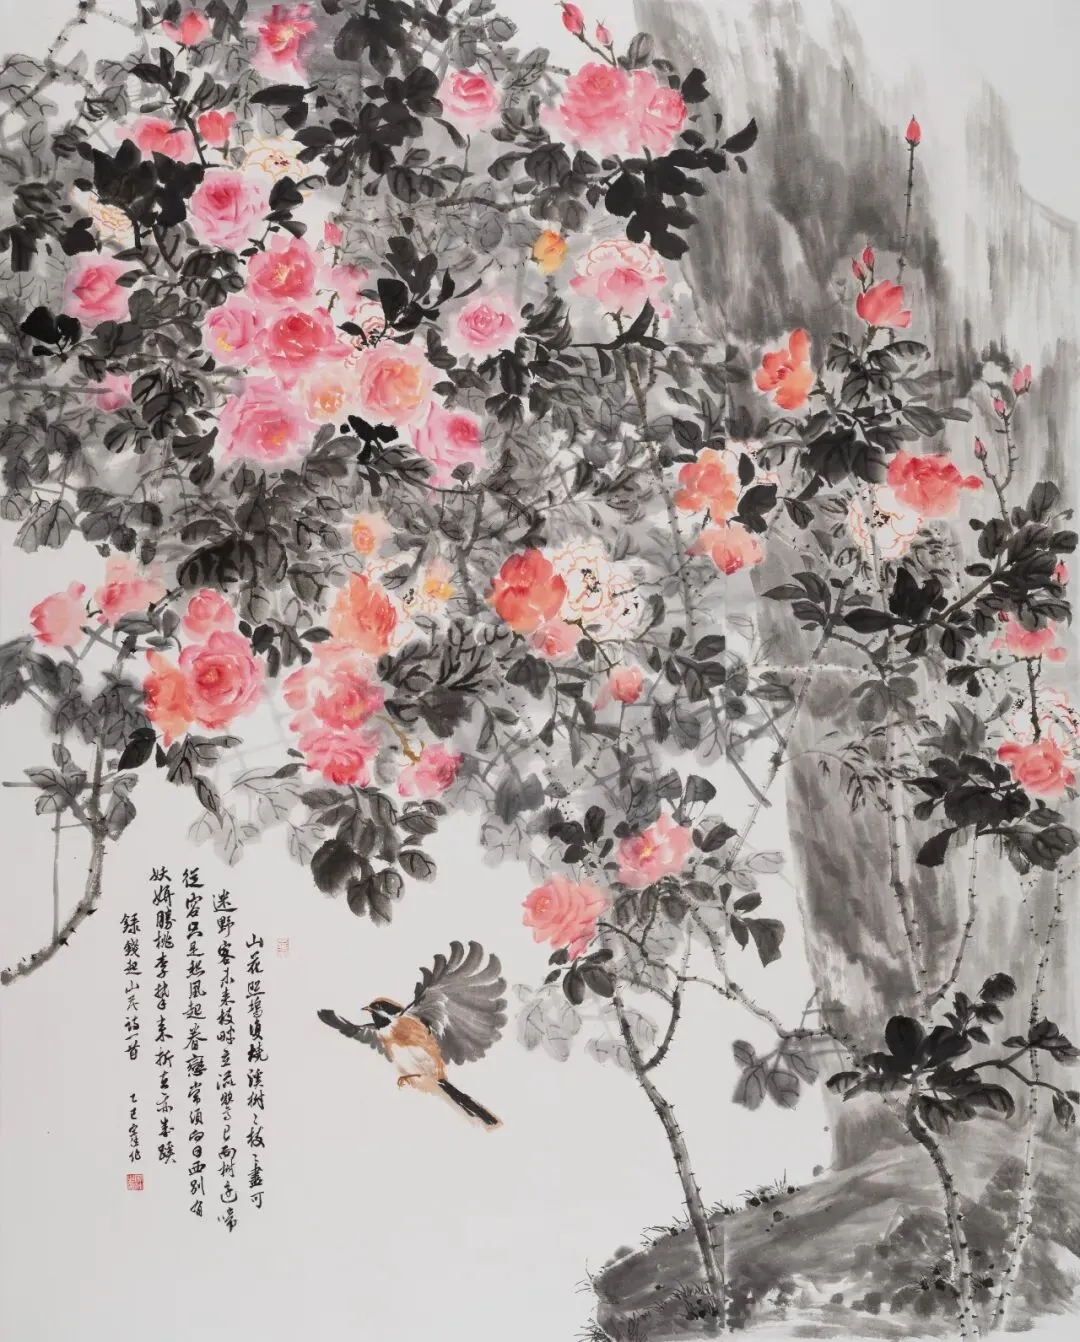 山花照塢復燒溪樹々枝々盡可
迷野客未來枝畔立流鶯已向樹邊啼
從容只是愁風起眷戀常須向日西別有
妖妍勝桃李攀來折去亦成蹊
錄錢起山花詩一首 乙巳 作